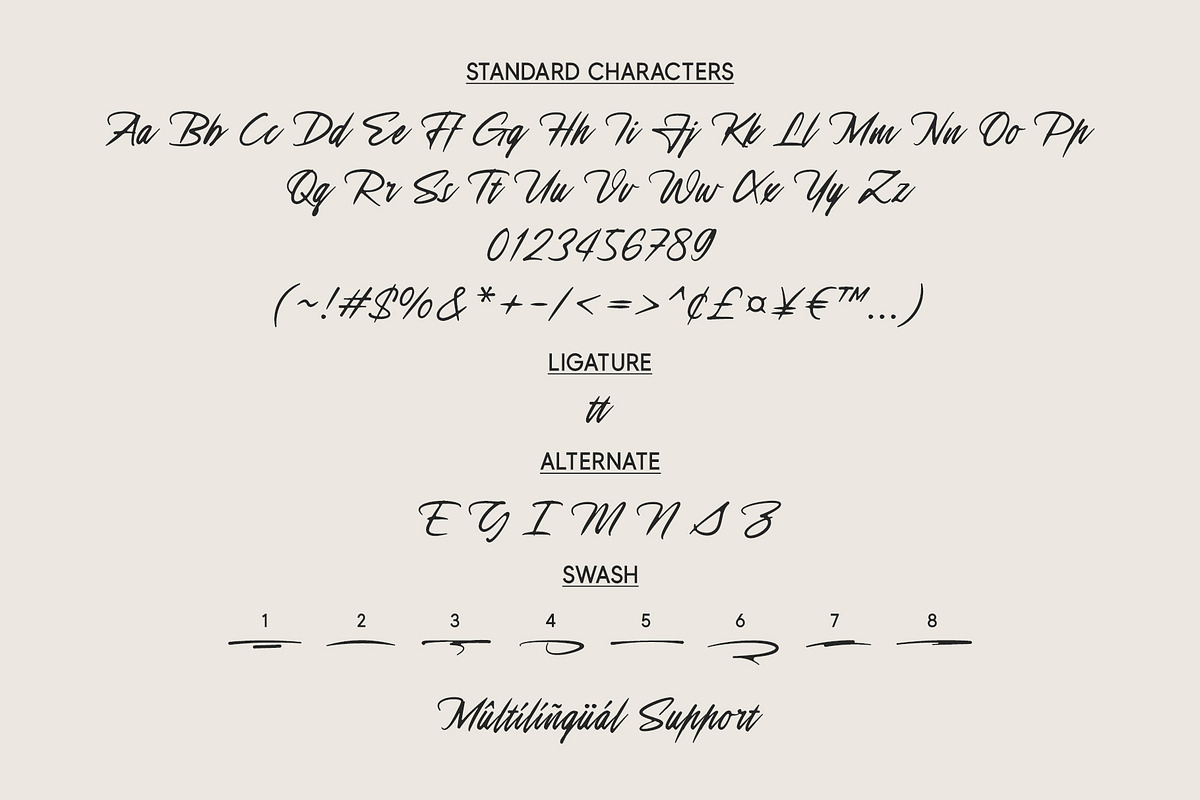 STANDARD CHARACTERS
Aa Bb Cc Dd Ee Ff Gg Hh Ii Jj Kk Ll Mm Nn Oo Pp
Qq Rr Ss Tt Uu Vv Ww Xx Yy Zz
0123456789
(~!#$%&*+-/<=>^¢£¤¥€™...)
LIGATURE
tt
ALTERNATE
E G I M N S Z
SWASH
1 2 3 4 5 6 7 8
Mûltílíñgüál Support